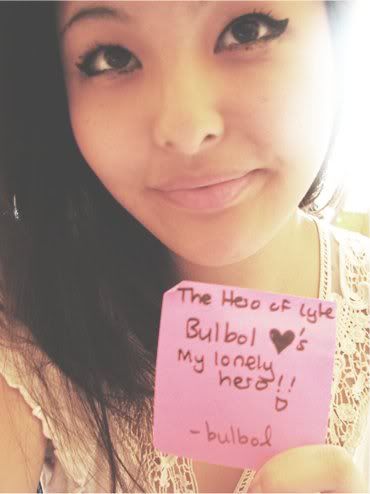 The Hero of Lyke
Bulbol ♥'s
My lonely
hero!!
-bulbol